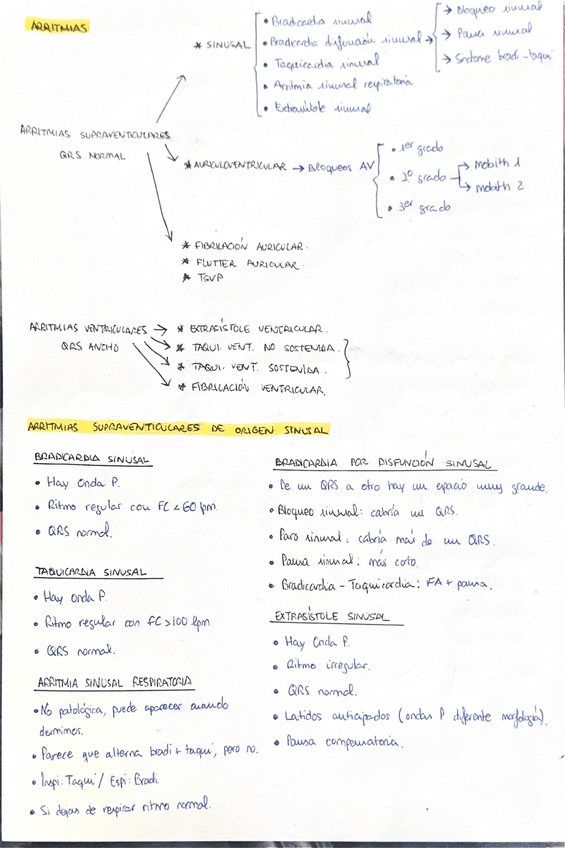 ARRITMIAS
* SINUSAL
• Bradicardia sinusal
• Bradicardia disfunción sinusal →
→ Bloqueo sinusal
→ Pausa sinusal
→ Sndrome bradi-taqui
• Taquicardia sinusal
• Arritmia sinusal respiratoria
• Extrasístole sinusal
ARRITMIAS SUPRAVENTICULARES
QRS NORMAL
* AURICULOVENTRICULAR → BLOQUEOS AV
• 1er grado
• 2º grado
→ Mobith 1
→ mobith 2
• 3er grado
* FIBRILACIÓN AURICULAR.
* FLUTTER AURICULAR.
* TSVP
ARRITMIAS VENTRICULARES
QRS ANCHO
→ * EXTRASÍSTOLE VENTRICULAR.
* TAQUI. VENT. NO SOSTENIDA.
* TAQUI. VENT. SOSTENIDA.
* FIBRILACIÓN VENTRICULAR.
ARRITMIAS SUPRAVENTICULARES DE ORIGEN SINUSAL
BRADICARDIA SINUSAL
• Hay Onda P.
• Ritmo regular con FC < 60 lpm.
• QRS normal.
TAQUICARDIA SINUSAL
• Hay Onda P.
• Ritmo regular con FC > 100 lpm.
• QRS normal.
ARRITMIA SINUSAL RESPIRATORIA
• No patológica, puede aparecer cuando
dormimos.
• Parece que alterna bradi + taqui, pero no.
• Inspi: Taqui / Espi: Bradi.
• Si dejas de respirar ritmo normal.
BRADICARDIA POR DISFUNCIÓN SINUSAL
• De un QRS a otro hay un espacio muy grande.
• Bloqueo sinusal: cabría un QRS.
• Paro sinusal: cabría más de un QRS.
• Pausa sinusal: más corto.
• Bradicardia - Taquicardia: FA + pausa.
EXTRASÍSTOLE SINUSAL
• Hay Onda P.
• Ritmo irregular.
• QRS normal.
• Latidos anticipados (ondas P diferente morfología).
• Pausa compensatoria.